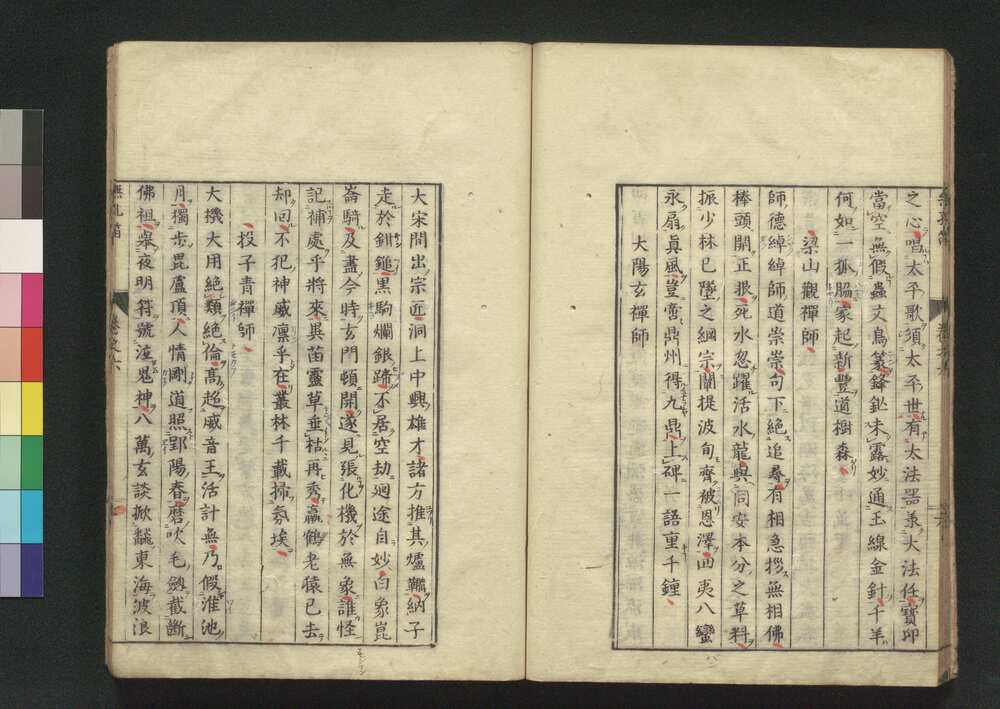 之心唱太平歌須太平世有大法器兼大法任寶印
當空無假蟲文鳥篆鋒鋩未露妙通玉線金針千羊
何如一狐腦家起新豐道樹森
梁山觀禪師
師德綽綽師道崇崇句下絕追尋有相急拶無相佛
棒頭開正眼死水忽躍活水龍與同安本分之草料
振少林已墜之綱宗關提波旬齊被恩澤四夷八蠻
永扇眞風豈啻鼎州得九鼎上碑一語重千鐘
大陽玄禪師
大宋間出宗匠洞上中興雄才諸方推其爐鞴納子
走於鉗鎚黒駒爛銀蹄不居空劫迴途自妙白象崑
崙騎及盡今時玄門頓開遂見張化機於無象誰怪
記補處乎將來異苗靈草垂枯再秀羸鶴老猿已去
却回不犯神威凛乎在叢林千載掃氛埃
投子青禪師
大機大用絕類絕倫高超威音王活計無乃假淮池
月獨步毘盧頂人情剛道照郢陽春磨吹毛劔截斷
佛祖擧夜明符號泣鬼神八萬玄談掀飜東海波浪
無孔笛
卷之六